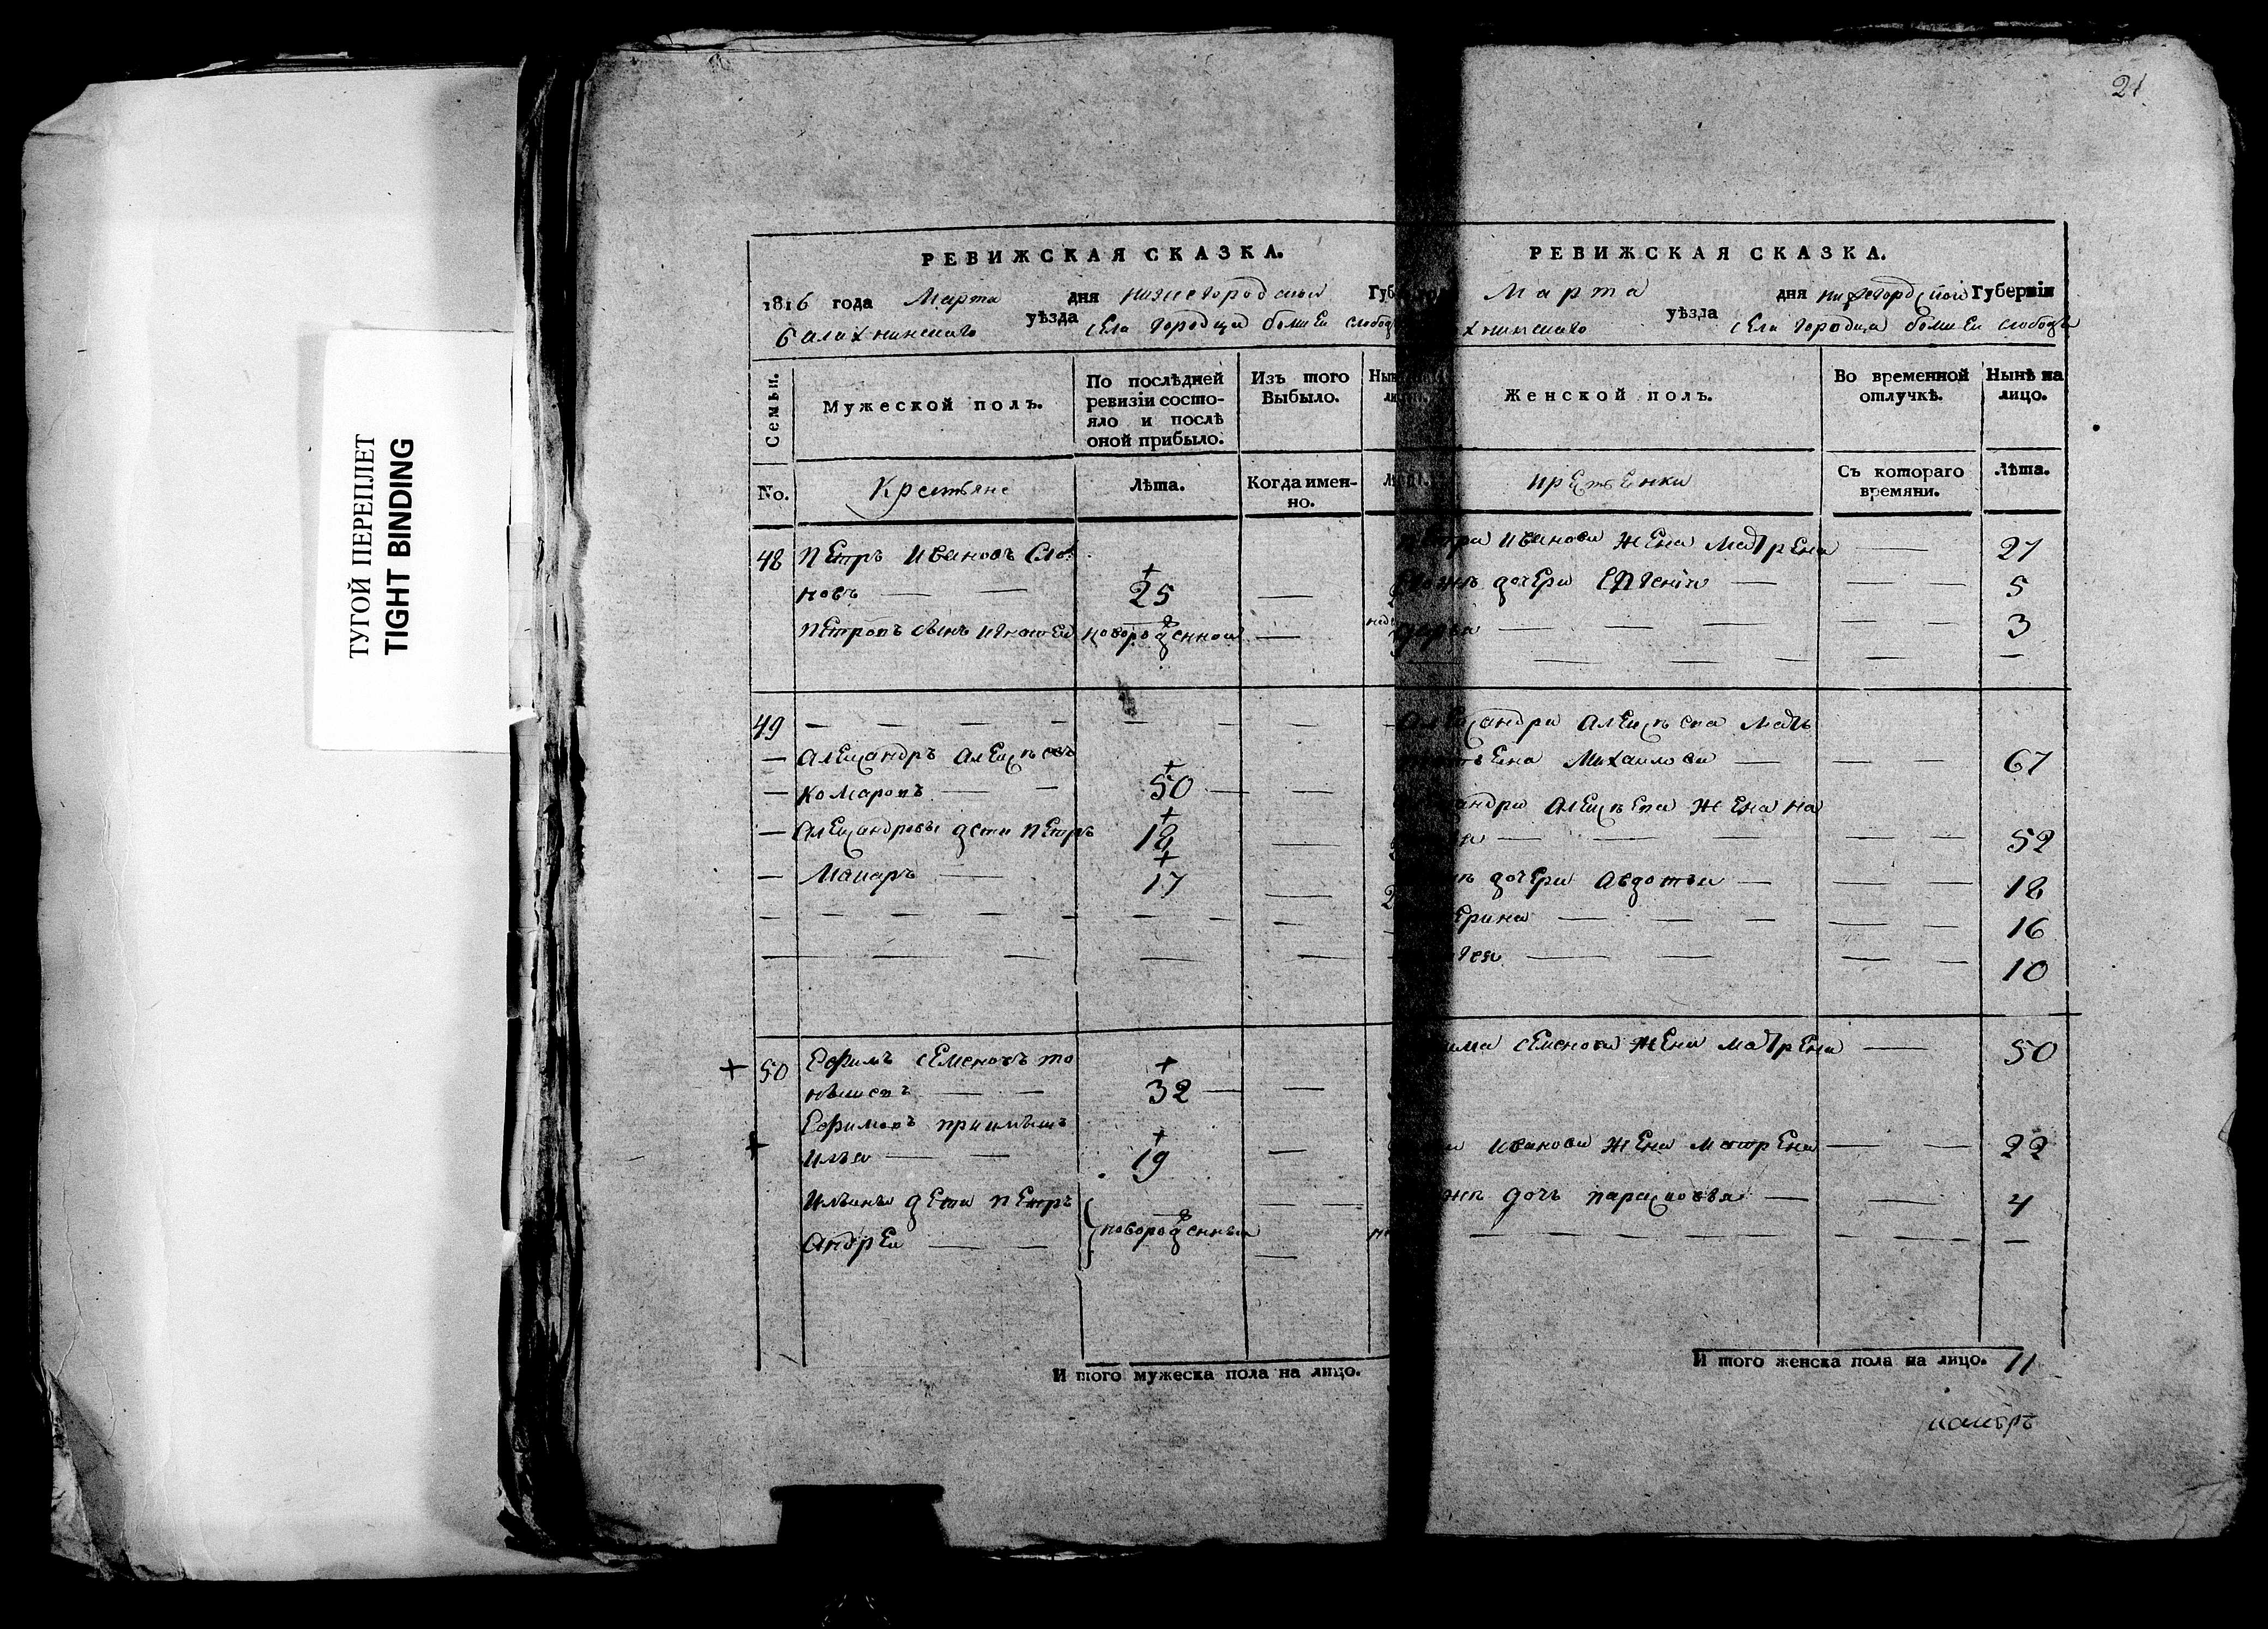 21
ТУГОЙ ПЕРЕПЛЕТ
TIGHT BINDING
РЕВИЖСКАЯ СКАЗКА.
1816 года Марта дня нижегородской Губ
балахнинскаго уѣзда села городца болшей слобод
Семьи.
Мужеской полъ.
По послѣдней ревизіи состо-
яло и послѣ
оной прибыло.
Изъ того
Выбыло.
Нын
No.
Крестьяне
Лѣта.
Когда имен-
но.
48 Петръ Ивановъ Сло
новъ — — 25 —
Петровъ сынъ новорожденной —
49 — — — —
— Александръ Алексѣевъ
— Комаровъ — — 50 — —
— Александровы дети Петръ 18 —
— Макаръ — 17 —
50 Ефимъ Семеновъ то
32 — —
Ефимовъ приимышъ
Илья — — 19 —
Ильины дети Петръ
Андрей — — новорожденныя —
И того мужеска пола на лицо.
РЕВИЖСКАЯ СКАЗКА.
Марта дня Губерніи
хнинскаго уѣзда села городца болшей слободы
Женской полъ.
Во временной
отлучкѣ.
Нынѣ на
лицо.
крестьенки
Съ котораго
времяни.
Лѣта.
Петра Иванова жена Матрена — 27
дочери — 5
Дарья — — — — — 3
— — — — — —
Александра Алексѣева мать
Михаилова — — — 67
андра Алексѣева жена На
— — — — — 52
дочери Авдотья — — — 18
ерина — — — — — 16
— — — — 10
има Семенова жена Матрена — 50
Иванова жена Матрена — — 22
дочь Парасковья — — 4
— — — — — — — — —
И того женска пола на лицо. 11